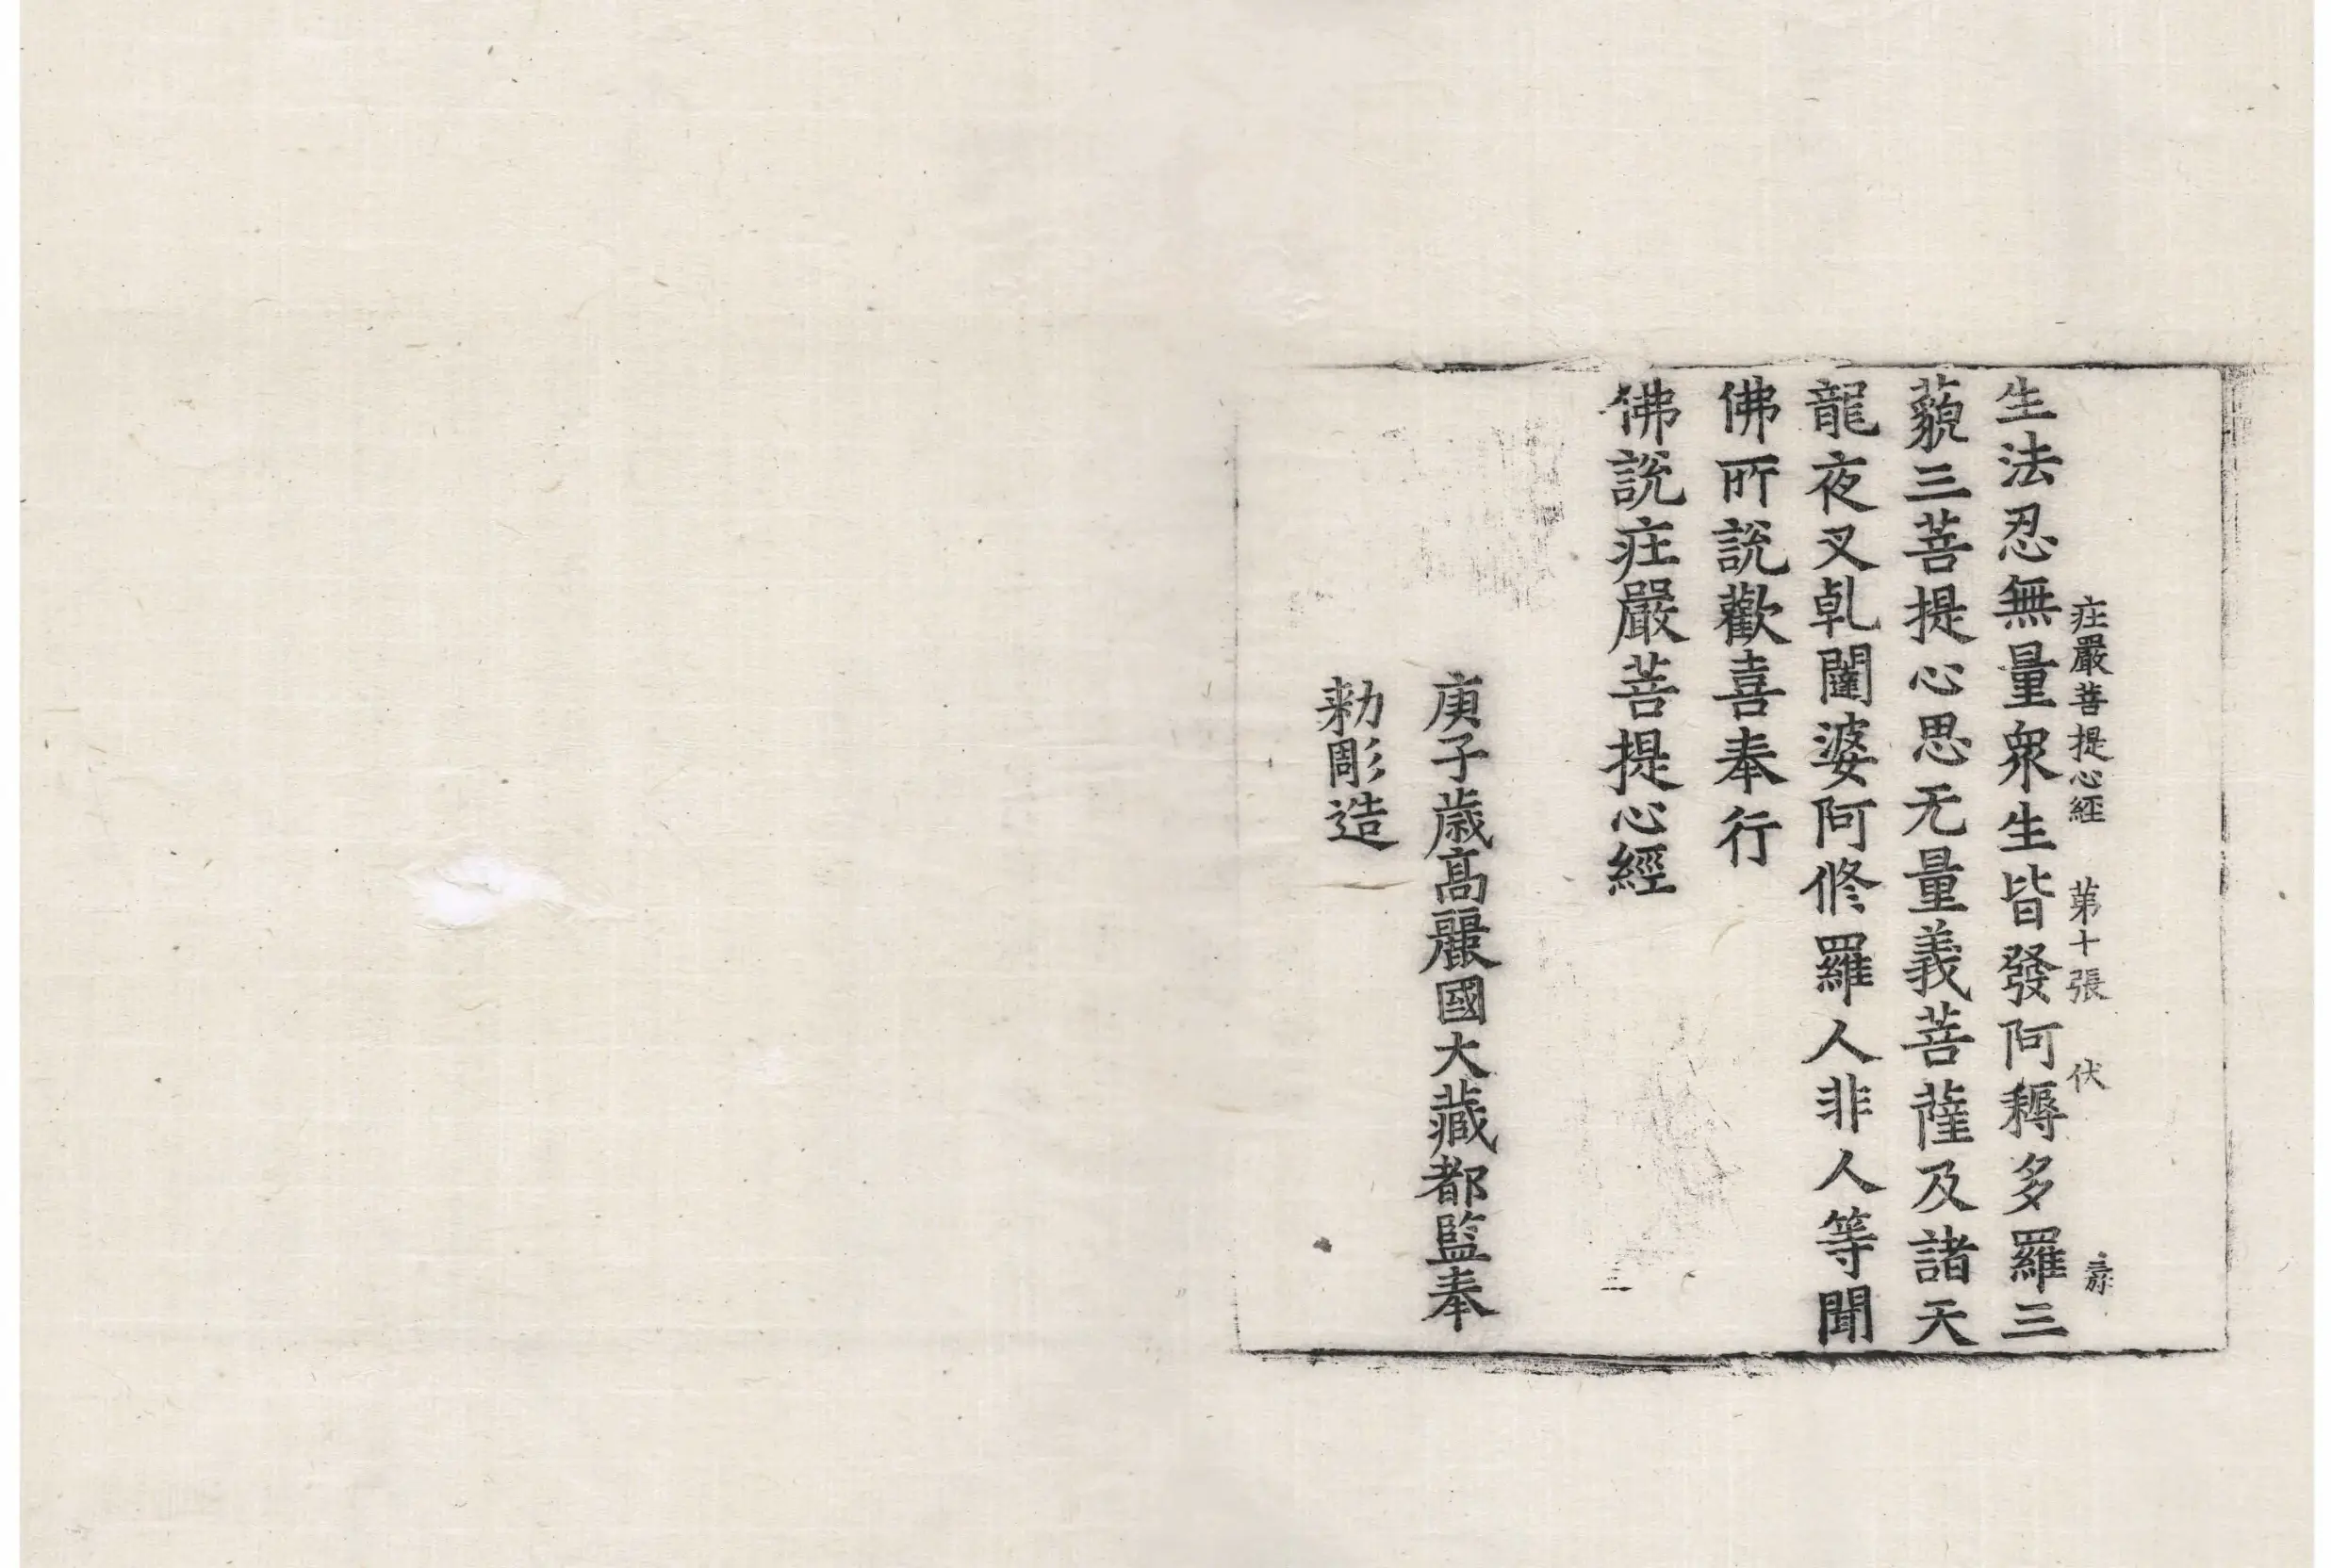 庄嚴菩提心經 第十張 伏
生法忍無量衆生皆發阿耨多羅三
藐三菩提心思无量義菩薩及諸天
龍夜叉乹闥婆阿修羅人非人等聞
佛所說歡喜奉行
佛說庄嚴菩提心經
庚子歳高麗國大藏都監奉
勑彫造